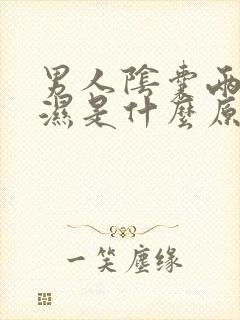 男人陰囊兩
濕是什麼原
一笑塵缘